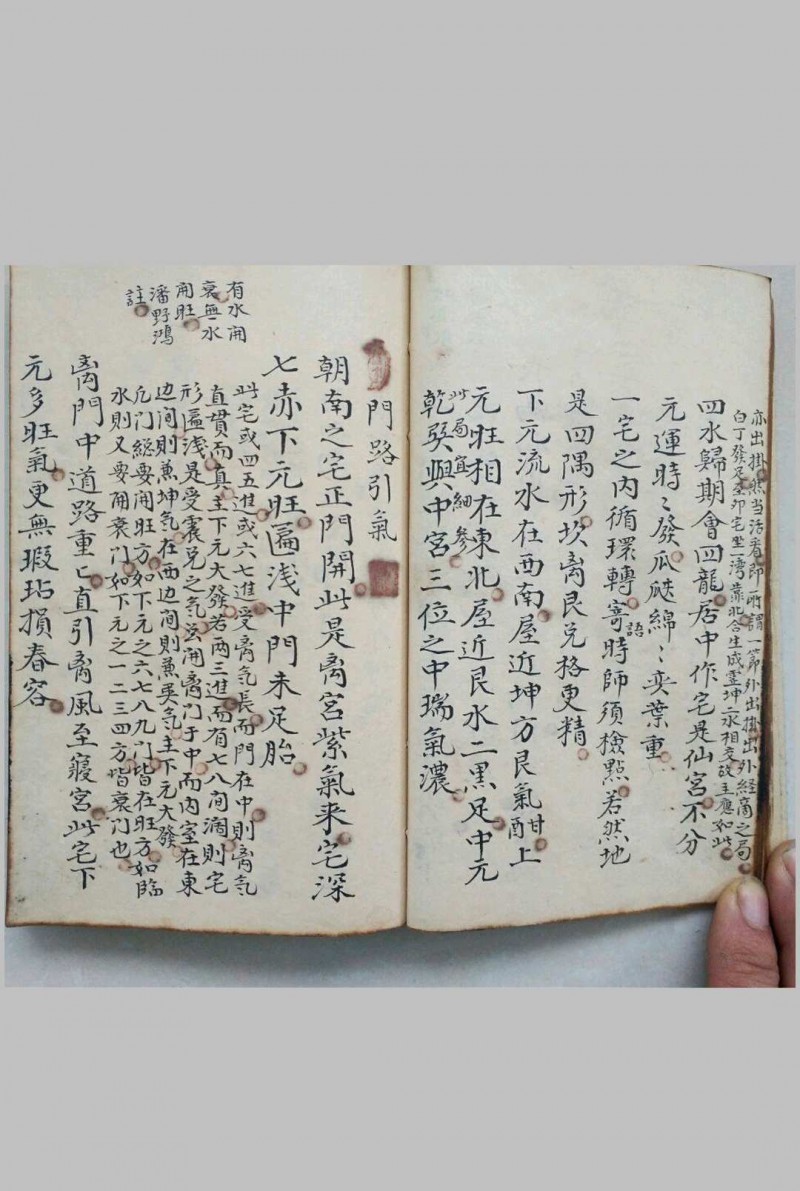 亦出掛然当活看即所謂一節外出掛出外経商之局
白丁發足至卯宅坐一湾靠北合生成霊坤水相交故主應如此
四水歸期會四龍居中作宅是仙宮不分
元運時〻發瓜瓞綿〻奕葉重
一宅之内循環轉寄語時師須検點若然地
是四隅形坎离艮兑格更精
下元流水在西南屋近坤方艮氣酣上
元旺相在東北屋近艮水二黒足中元
此局宜細參
乾巽與中宮三位之中瑞氣濃
門路引氣
朝南之宅正門開此是离宮紫氣来宅深
七赤下元旺匾浅中門未足胎
此宅或四五進或六七進受离氣長而門在中則离氣
直貫而真主下元大發若两三進而有七八间濶則宅
形匾浅是受震兑之气虽開离门于中而内室在東
边间則兼坤气在西边间則兼巽气主下元大發
凡门総要開旺方如下元之六七八九门皆在旺方如臨
水則又要開衰门如下元之一二三四方皆衰门也
离門中道路重〻直引离風至寢宮此宅下
元多旺氣更無瑕玷損春容
有水開
衰無水
開旺
潘野鴻
註